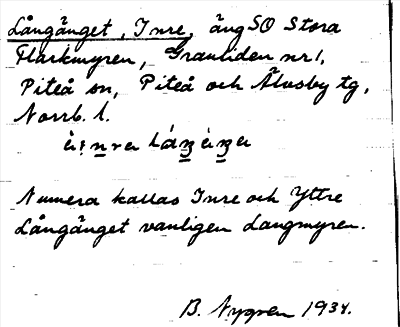 Långänget, Inre, äng SO Stora
Flarkmyren, Granliden nr 1,
Piteå sn, Piteå och Älvsby tg,
Norrb. l.
Numera kallas Inre och Yttre
Långänget vanligen Langmyren.
B. Nygren 1934.